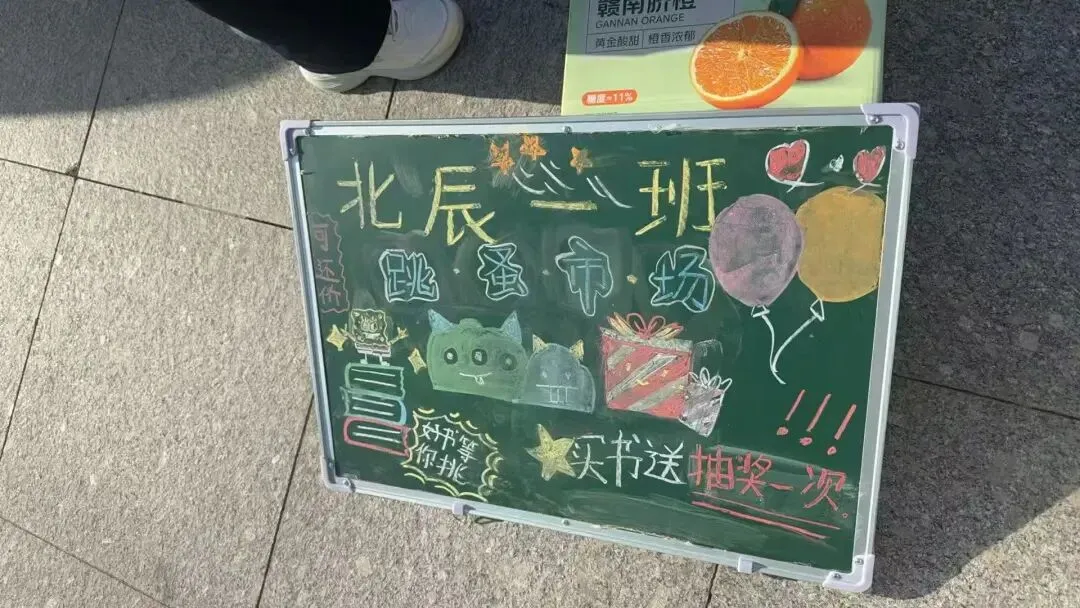 赣南脐橙
GANNAN ORANGE
黄金酸甜 橙香浓郁
糖度≈11%
北辰一班
跳·蚤·市·场
可还价
好书等
你挑
买书送抽奖一次。
!!!